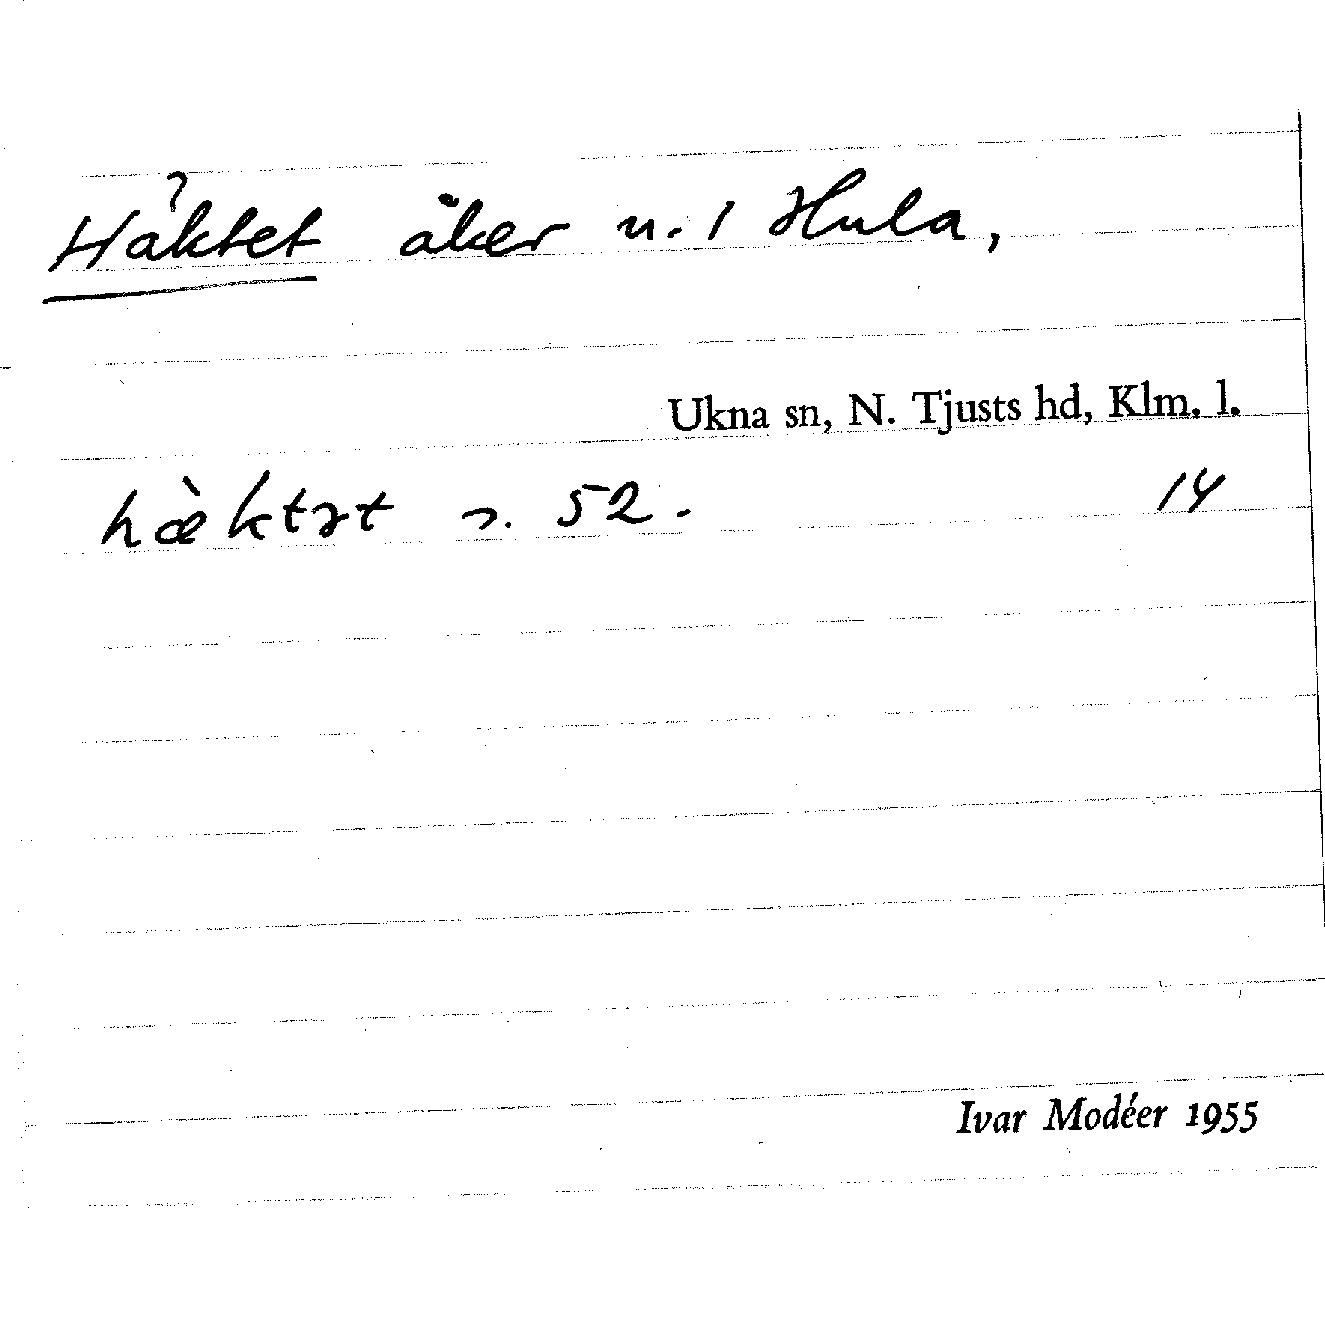 Häktet åker n. 1 Hula,
Ukna sn, N. Tjusts hd, Klm. l.
hæ̀ktət s. 52. 14
Ivar Modéer 1955